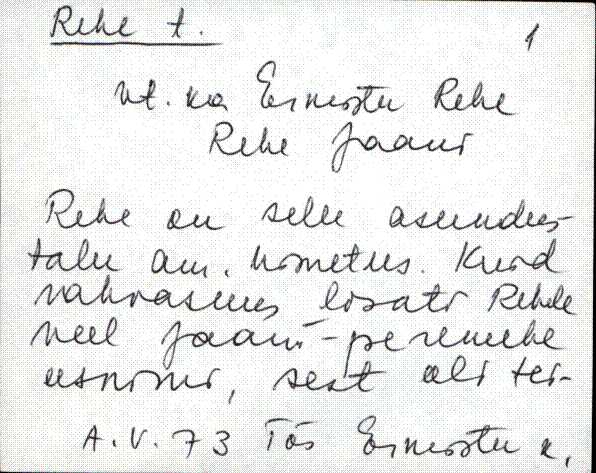 Rehe t.
1
vt. ka Ernestu Rehe
Rehe Jaani
Rehe on selle asundus-
talu am. nimetus. Kuid
rahvasuus lisati Rehele
veel Jaani-peremehe
eesnimi, sest oli tei-
A.V. 73 Tõs Ernestu k.